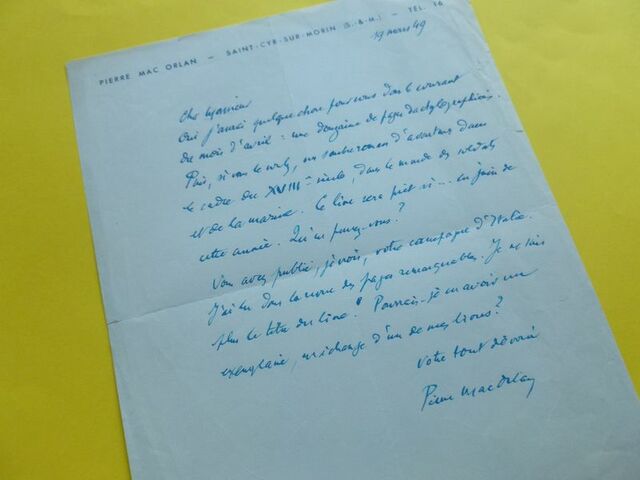 PIERRE MAC ORLAN — SAINT-CYR-SUR-MORIN (S.-&-M.) — TÉL. 16
19 mars 49
Cher Monsieur
Oui j'aurai quelque chose pour vous dans le courant
du mois d'avril : une douzaine de pages dactylographiées.
Puis, si vous le voulez, un roman d'aventures dans
le cadre du XVIIIe siècle, dans le monde des soldats
et de la marine. Ce livre sera prêt ici ... en juin de
cette année. Qu'en pensez-vous ?
Vous avez publié, je crois, votre campagne d'Italie.
J'ai lu dans la revue des pages remarquables. Je ne sais
plus le titre du livre. Pourrais-je en avoir un
exemplaire, en échange d'un de mes livres ?
Votre tout dévoué
Pierre Mac Orlan